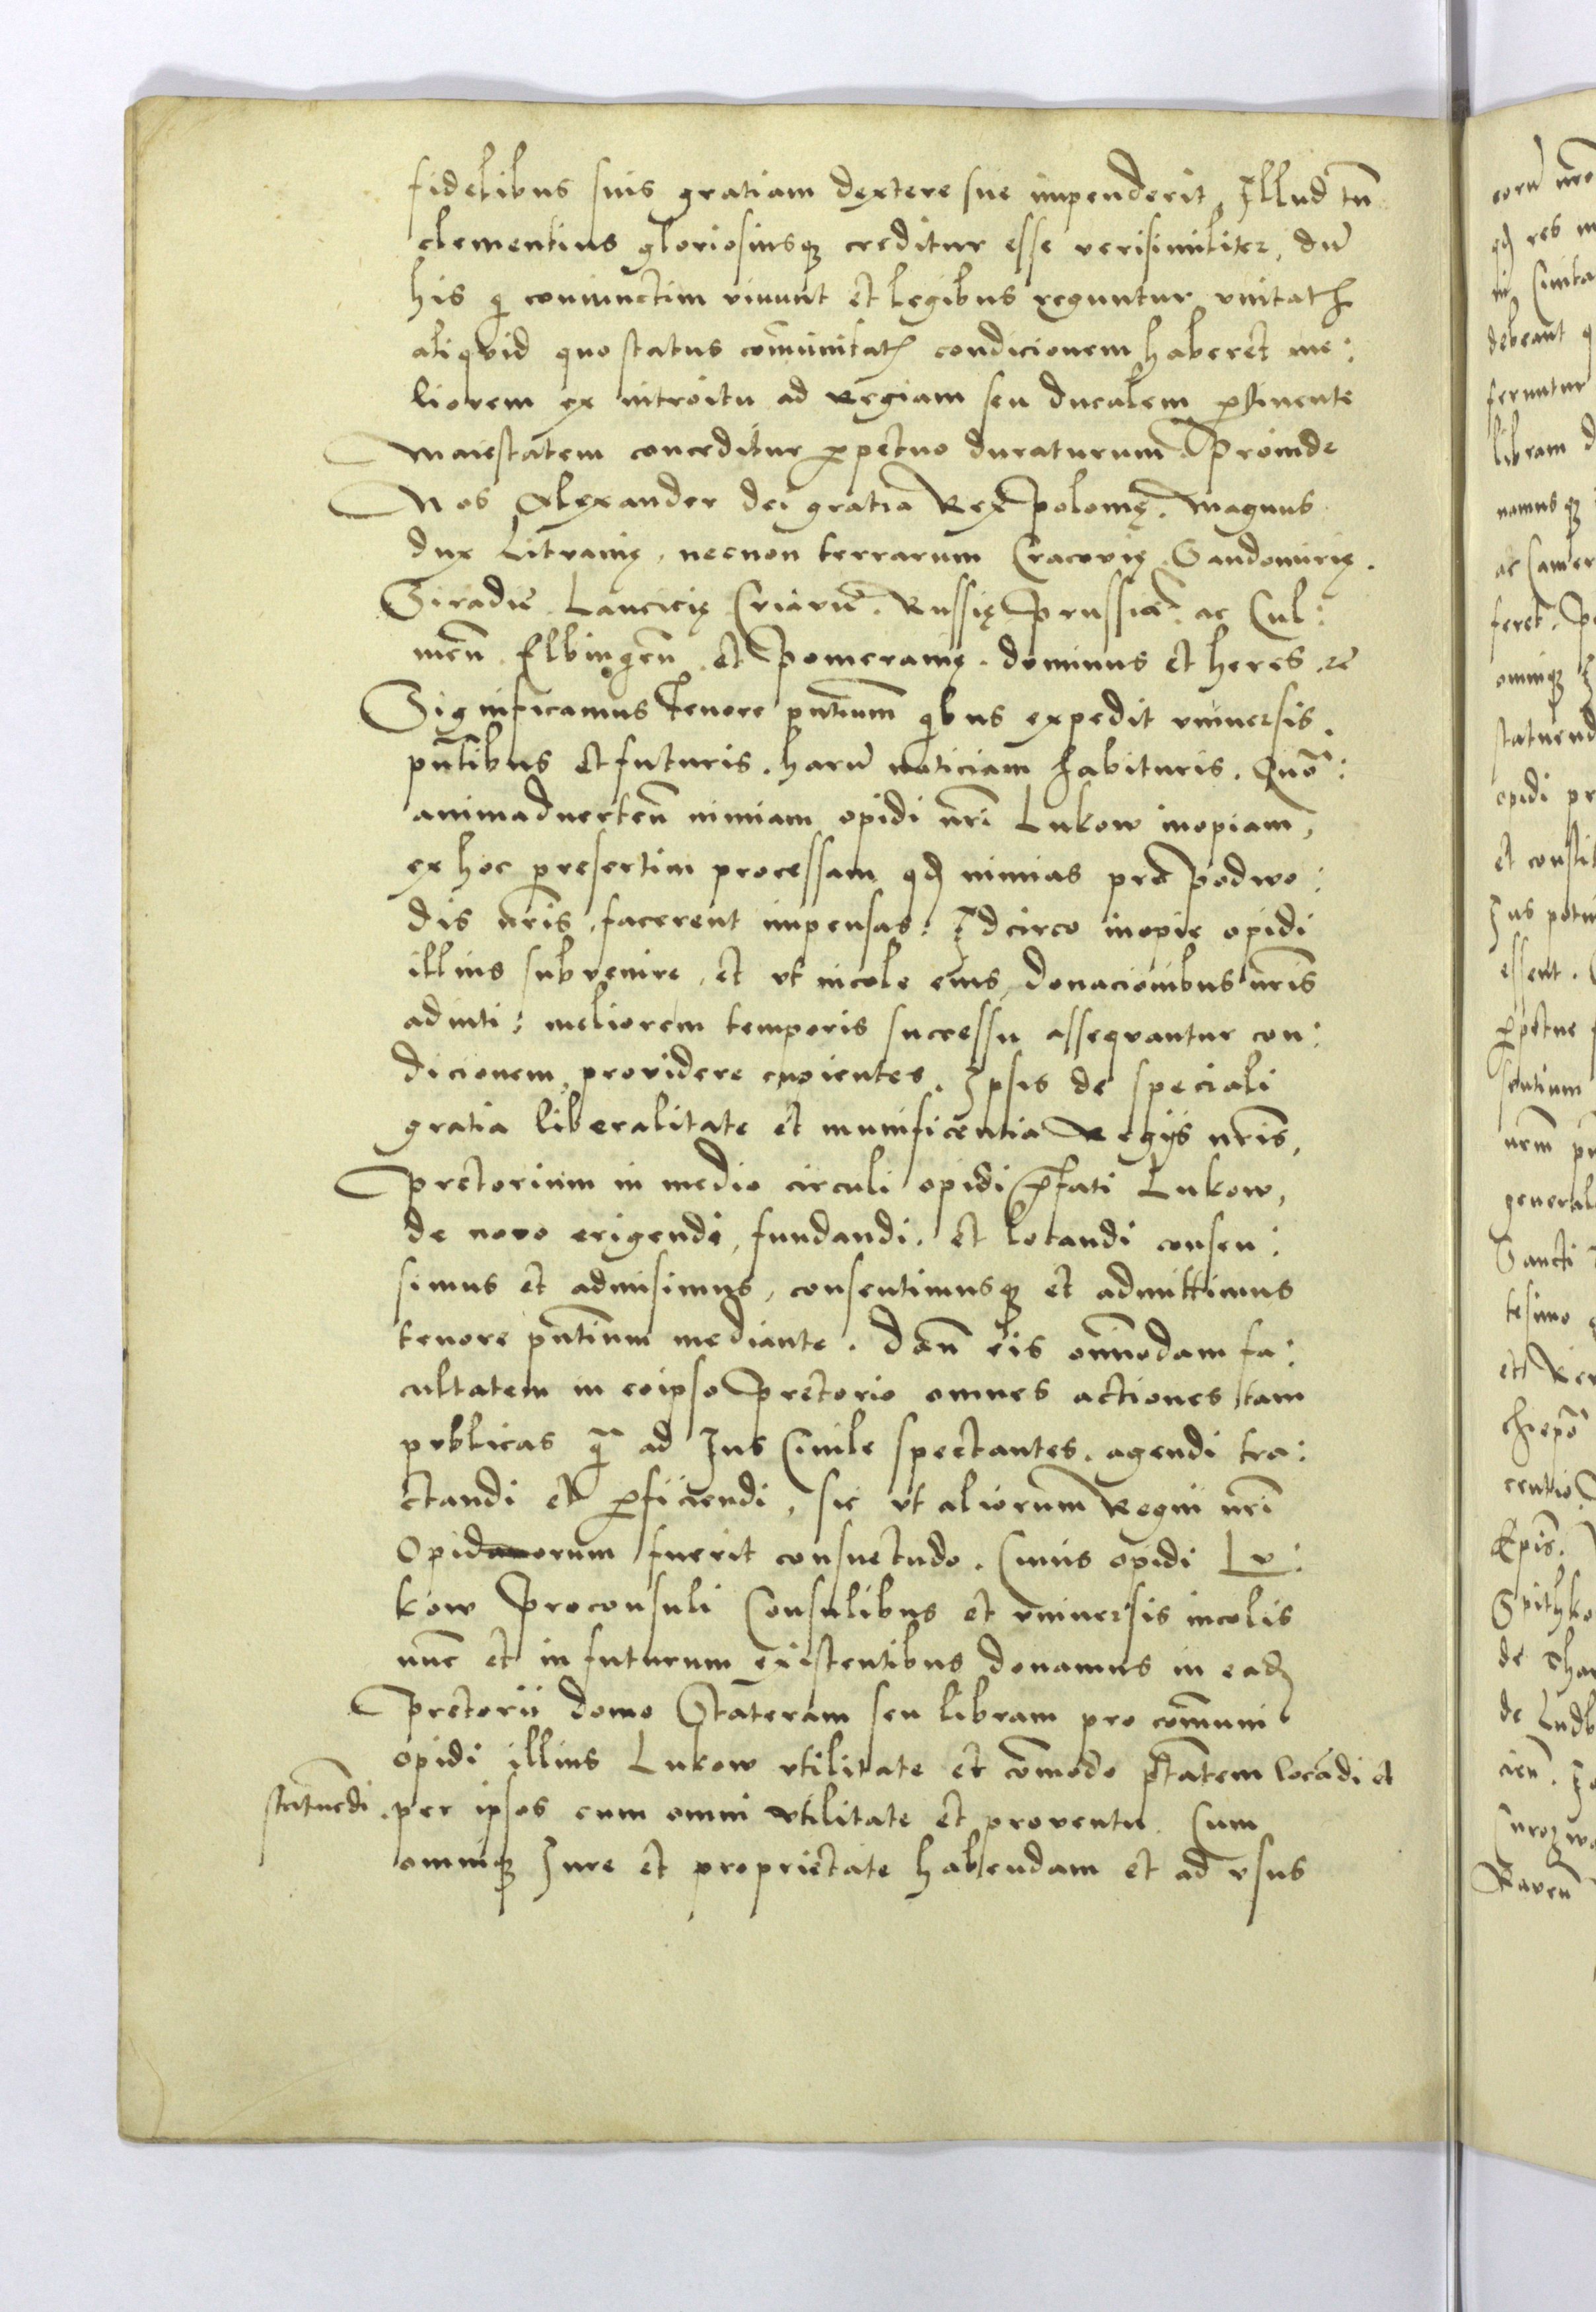 fidelibus suis gratiam dextere sue impenderit, Illud tn̄
clementius gloriosiusqȝ creditur esse verisimiliter, dū
his q̇ coniunctim viuunt et legibus reguntur vnitatꝭ
aliquid quo status cōmunitatꝭ condicionem haberet me:
liorem ex introitu ad Regiam seu ducalem ꝑtinente
Maiestatem conceditur ꝑpetuo duraturum. Proinde
Nos Alexander dei gratia Rex Polonię. Magnus
dux Litvanię, necnon terrarum Cracovię Sandomirię.
Siradiē Lancicię Cuiaviē. Russię Prussiā ac Cul:
meñ Elbingeñ et Pomeranię. dominus et heres ꝛc̄
Significamus Tenore pn̄tium q̇bus expedit vniuersis.
pn̄tibus et futuris. harū noticiam habituris. Quō:
animadverteñ nimiam opidi nr̄i Lukow inopiam,
ex hoc presertim processam qđ nimias pro Podwo:
dis nr̄is facerent impensas: Idcirco inopie opidi
illius subvenire, et vt incole eius, donacionibus nr̄is
adiuti: meliorem temporis successu assequantur con:
dicionem, providere cupientes. Ipsis de speciali
gratia liberalitate et munificentia Regijs nr̄is,
Pretorium in medio circuli opidi p̄fati Lukow,
de novo erigendi, fundandi. et locandi consen:
simus et admisimus, consentimusqȝ et admittimus
tenore pn̄tium mediante. Dañ eis om̄imodam fa:
cultatem in eoipso Pretorio omnes actiones tam
publicas q̄ ad Ius Ciuile spectantes. agendi tra:
ctandi et ꝑficiendi, sic vt aliorum Regni nr̄i
Opidorum fuerit consuetudo. Cuius opidi Lv:
kow Proconsuli Consulibus et vniuersis incolis
nūc et in futurum existentibus donamus in eadꝫ
Pretorii domo Stateram seu libram pro cōmuni
opidi illius Lukow vtilitate et cōmodo p̄tatem locādi et
statuēdi. per ipsos cum omni vtilitate et proventu. Cum
omniqȝ Iure et proprietate habendam et ad vsus